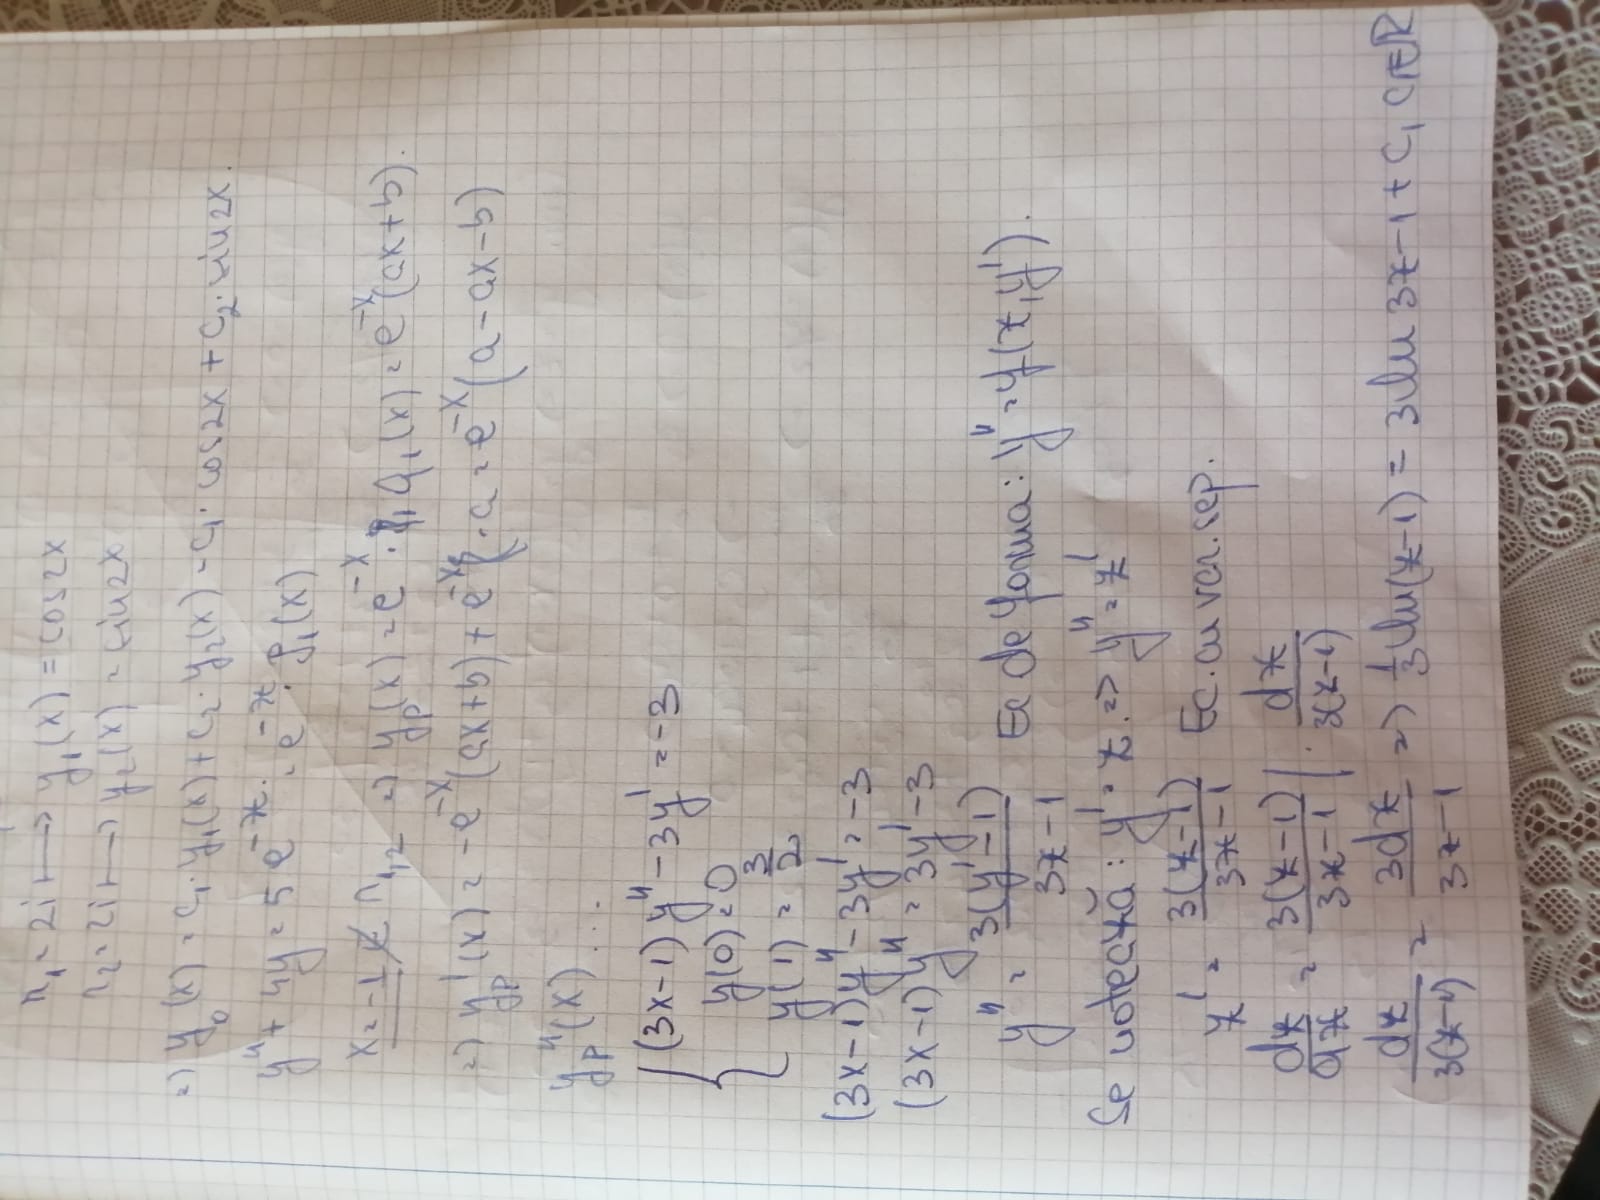 r₁ = 2i ⟼ y₁(x) = cos2x
r₂ = 2i ⟼ y₂(x) = sin2x
=) y₀(x) = c₁·y₁(x) + c₂·y₂(x) = c₁·cos2x + c₂·sin2x.
y'' + 4y = 5e^{-x} = e^{-x}·P₁(x)
x = -1 ∉ r₁,₂ =) y_p(x) = e^{-x}·Q₁(x) = e^{-x}(ax+b).
=) y_p'(x) = -e^{-x}(ax+b) + e^{-x}·a = e^{-x}(a-ax-b)
y_p''(x) ....
{ (3x-1)y'' - 3y' = -3
y(0) = 0
y(1) = 3/2
(3x-1)y'' - 3y' = -3
(3x-1)y'' = 3y' - 3
y'' = 3(y'-1)/(3x-1) Ec de forma: y'' = f(x,y').
Se notează: y' = z. => y'' = z'
z' = 3(z-1)/(3x-1) Ec. cu var. sep.
dz/dx = 3(z-1)/(3x-1) | · dx/3(z-1)
dz/3(z-1) = 3dx/(3x-1) =) 1/3 ln(z-1) = 3ln 3x-1 + C₁ C₁∈ℝ